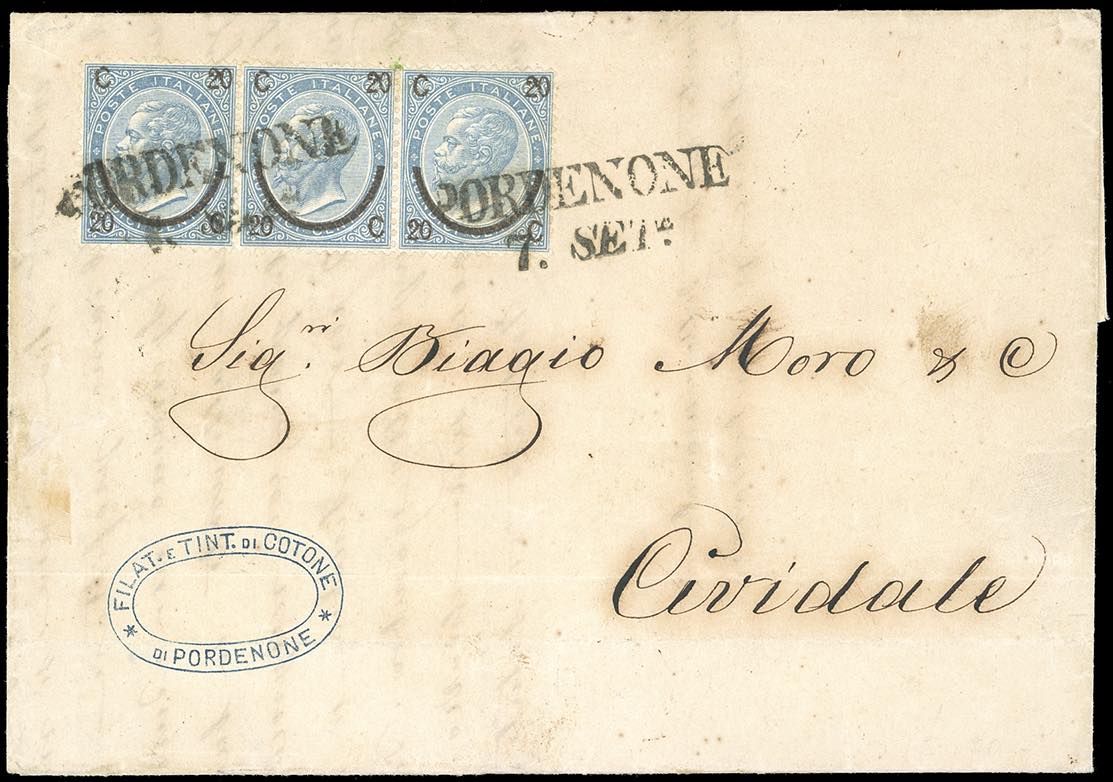 C 20 C 20 C 20
POSTE ITALIANE POSTE ITALIANE POSTE ITALIANE
20 C 20 C 20 C
PORDENONE
PORDENONE
7. SETe
Sigri Biagio Moro & C
Cividale
FILAT. E TINT. DI COTONE
DI PORDENONE